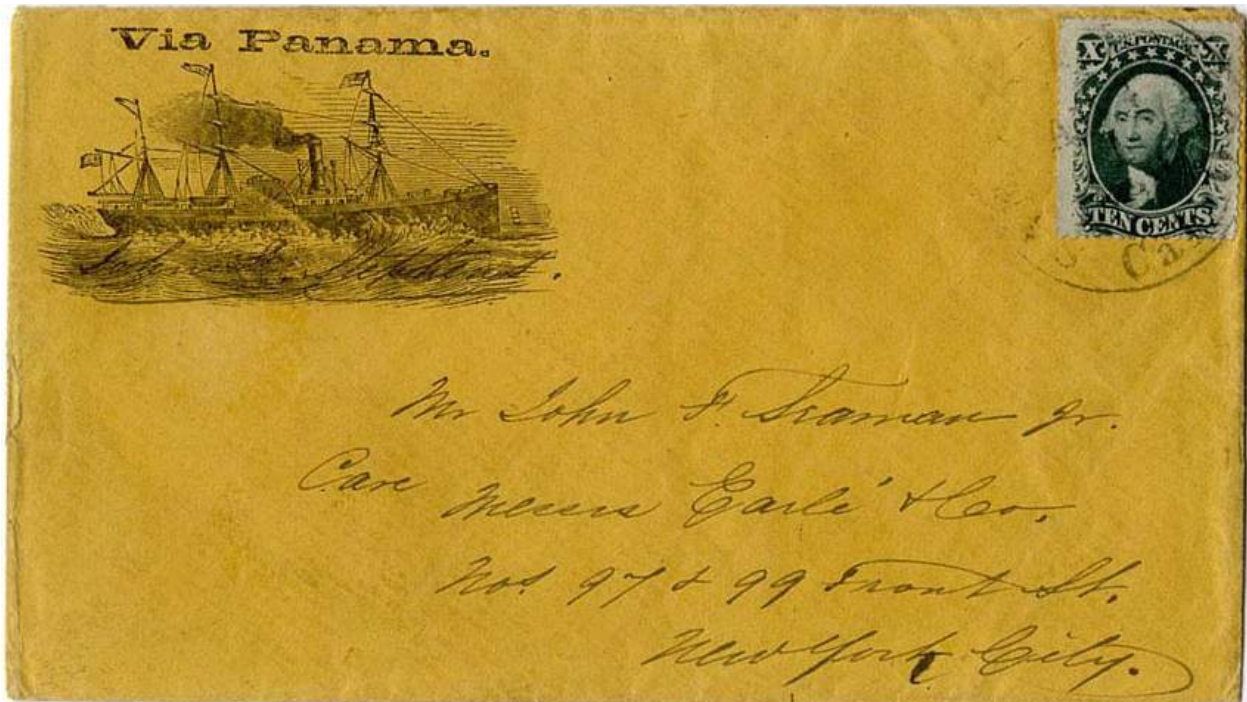 Via Panama.
X U.S. POSTAGE X
TEN CENTS
Ca
Mr John F. Seaman Jr.
Care
Messrs Earle & Co.
Nos. 97 & 99 Front St.
New York City.